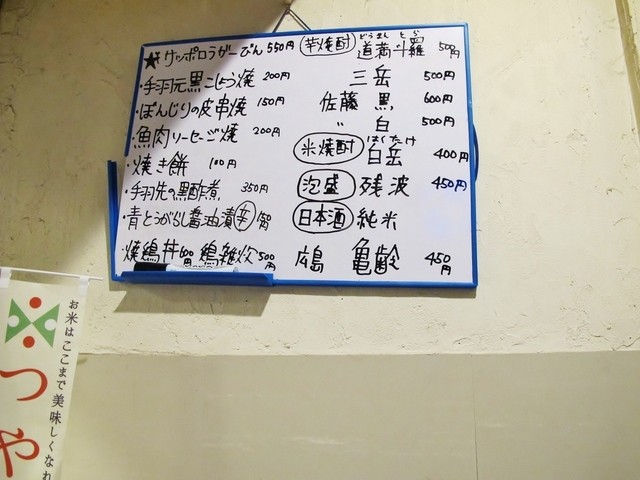 ★サッポロラガーびん 550円
・手羽元黒こしょう焼 200円
・ぼんじりの皮串焼 150円
・魚肉ソーセージ焼 200円
・焼き餅 100円
・手羽先の黒酢煮 350円
・青とうがらし醤油漬 辛
焼鶏丼 鶏雑炊 500円
芋焼酎 どうまんとら
道満斗羅 500円
三岳 500円
佐藤 黒 600円
〃 白 500円
米焼酎 はくたけ
白岳 400円
泡盛 残波 450円
日本酒 純米
広島 亀齢 450円
お米はここまで美味しくなれ
つや